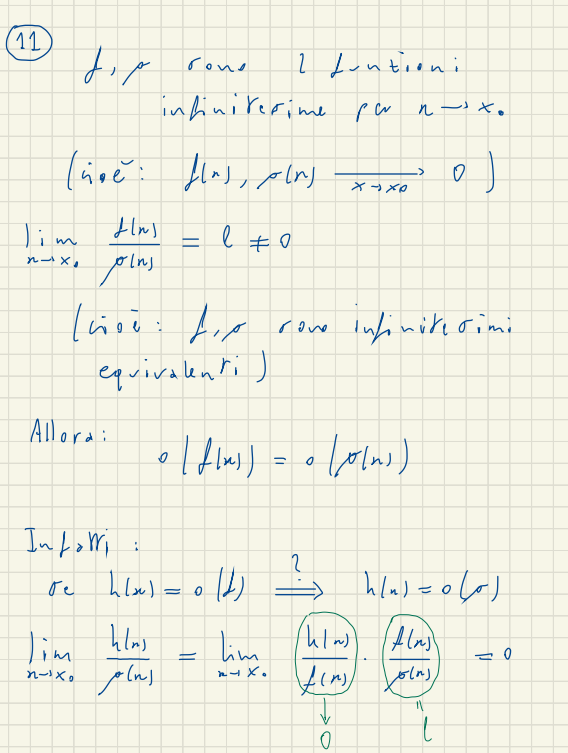 11
f, g sono 2 funzioni
infinitesime per x → x₀
(cioè: f(x), g(x) →(x→x₀) 0)
lim_{x→x₀} f(x)/g(x) = l ≠ 0
(cioè: f, g sono infinitesimi
equivalenti)
Allora:
o(f(x)) = o(g(x))
Infatti:
se h(x) = o(f) ⟹? h(x) = o(g)
lim_{x→x₀} h(x)/g(x) = lim_{x→x₀} h(x)/f(x) · f(x)/g(x) = 0
↓ 0 = l